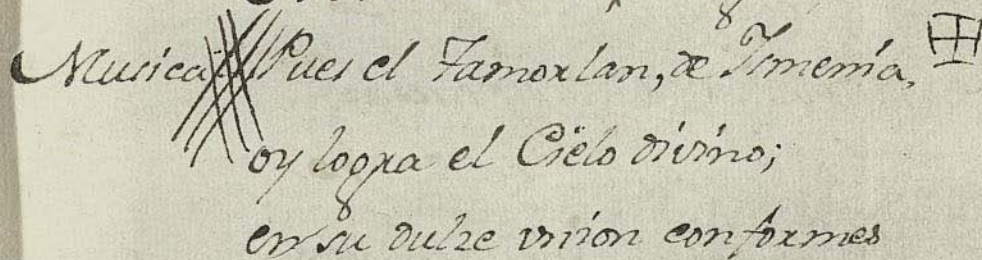 Musica. Pues el Tamorlan, de Ismenia,
oy logra el Cièlo divino;
en su dulze vnion conformes